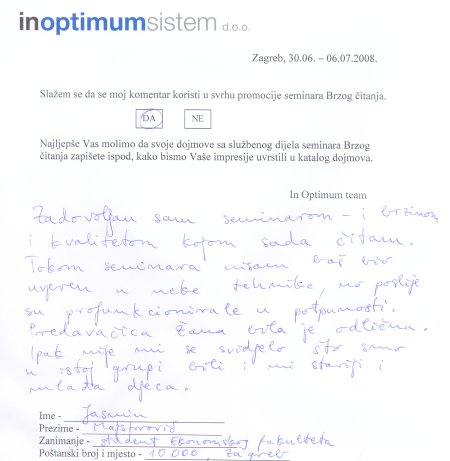 inoptimumsistem d.o.o.
Zagreb, 30.06. – 06.07.2008.
Slažem se da se moj komentar koristi u svrhu promocije seminara Brzog čitanja.
DA NE
Najljepše Vas molimo da svoje dojmove sa službenog dijela seminara Brzog
čitanja zapišete ispod, kako bismo Vaše impresije uvrstili u katalog dojmova.
In Optimum team
Zadovoljan sam seminarom – i brzinom
i kvalitetom kojom sada čitam.
Tokom seminara nisam baš bio
uvjeren u neke tehnike, no poslije
su profunkcionirale u potpunosti.
Predavačica Žana bila je odlična.
Ipak nije mi se svidjelo što smo
u istoj grupi bili i mi stariji i
mlađa djeca.
Ime - Jasmin
Prezime - Majstorović
Zanimanje - student Ekonomskog fakulteta
Poštanski broj i mjesto - 10 000, Zagreb